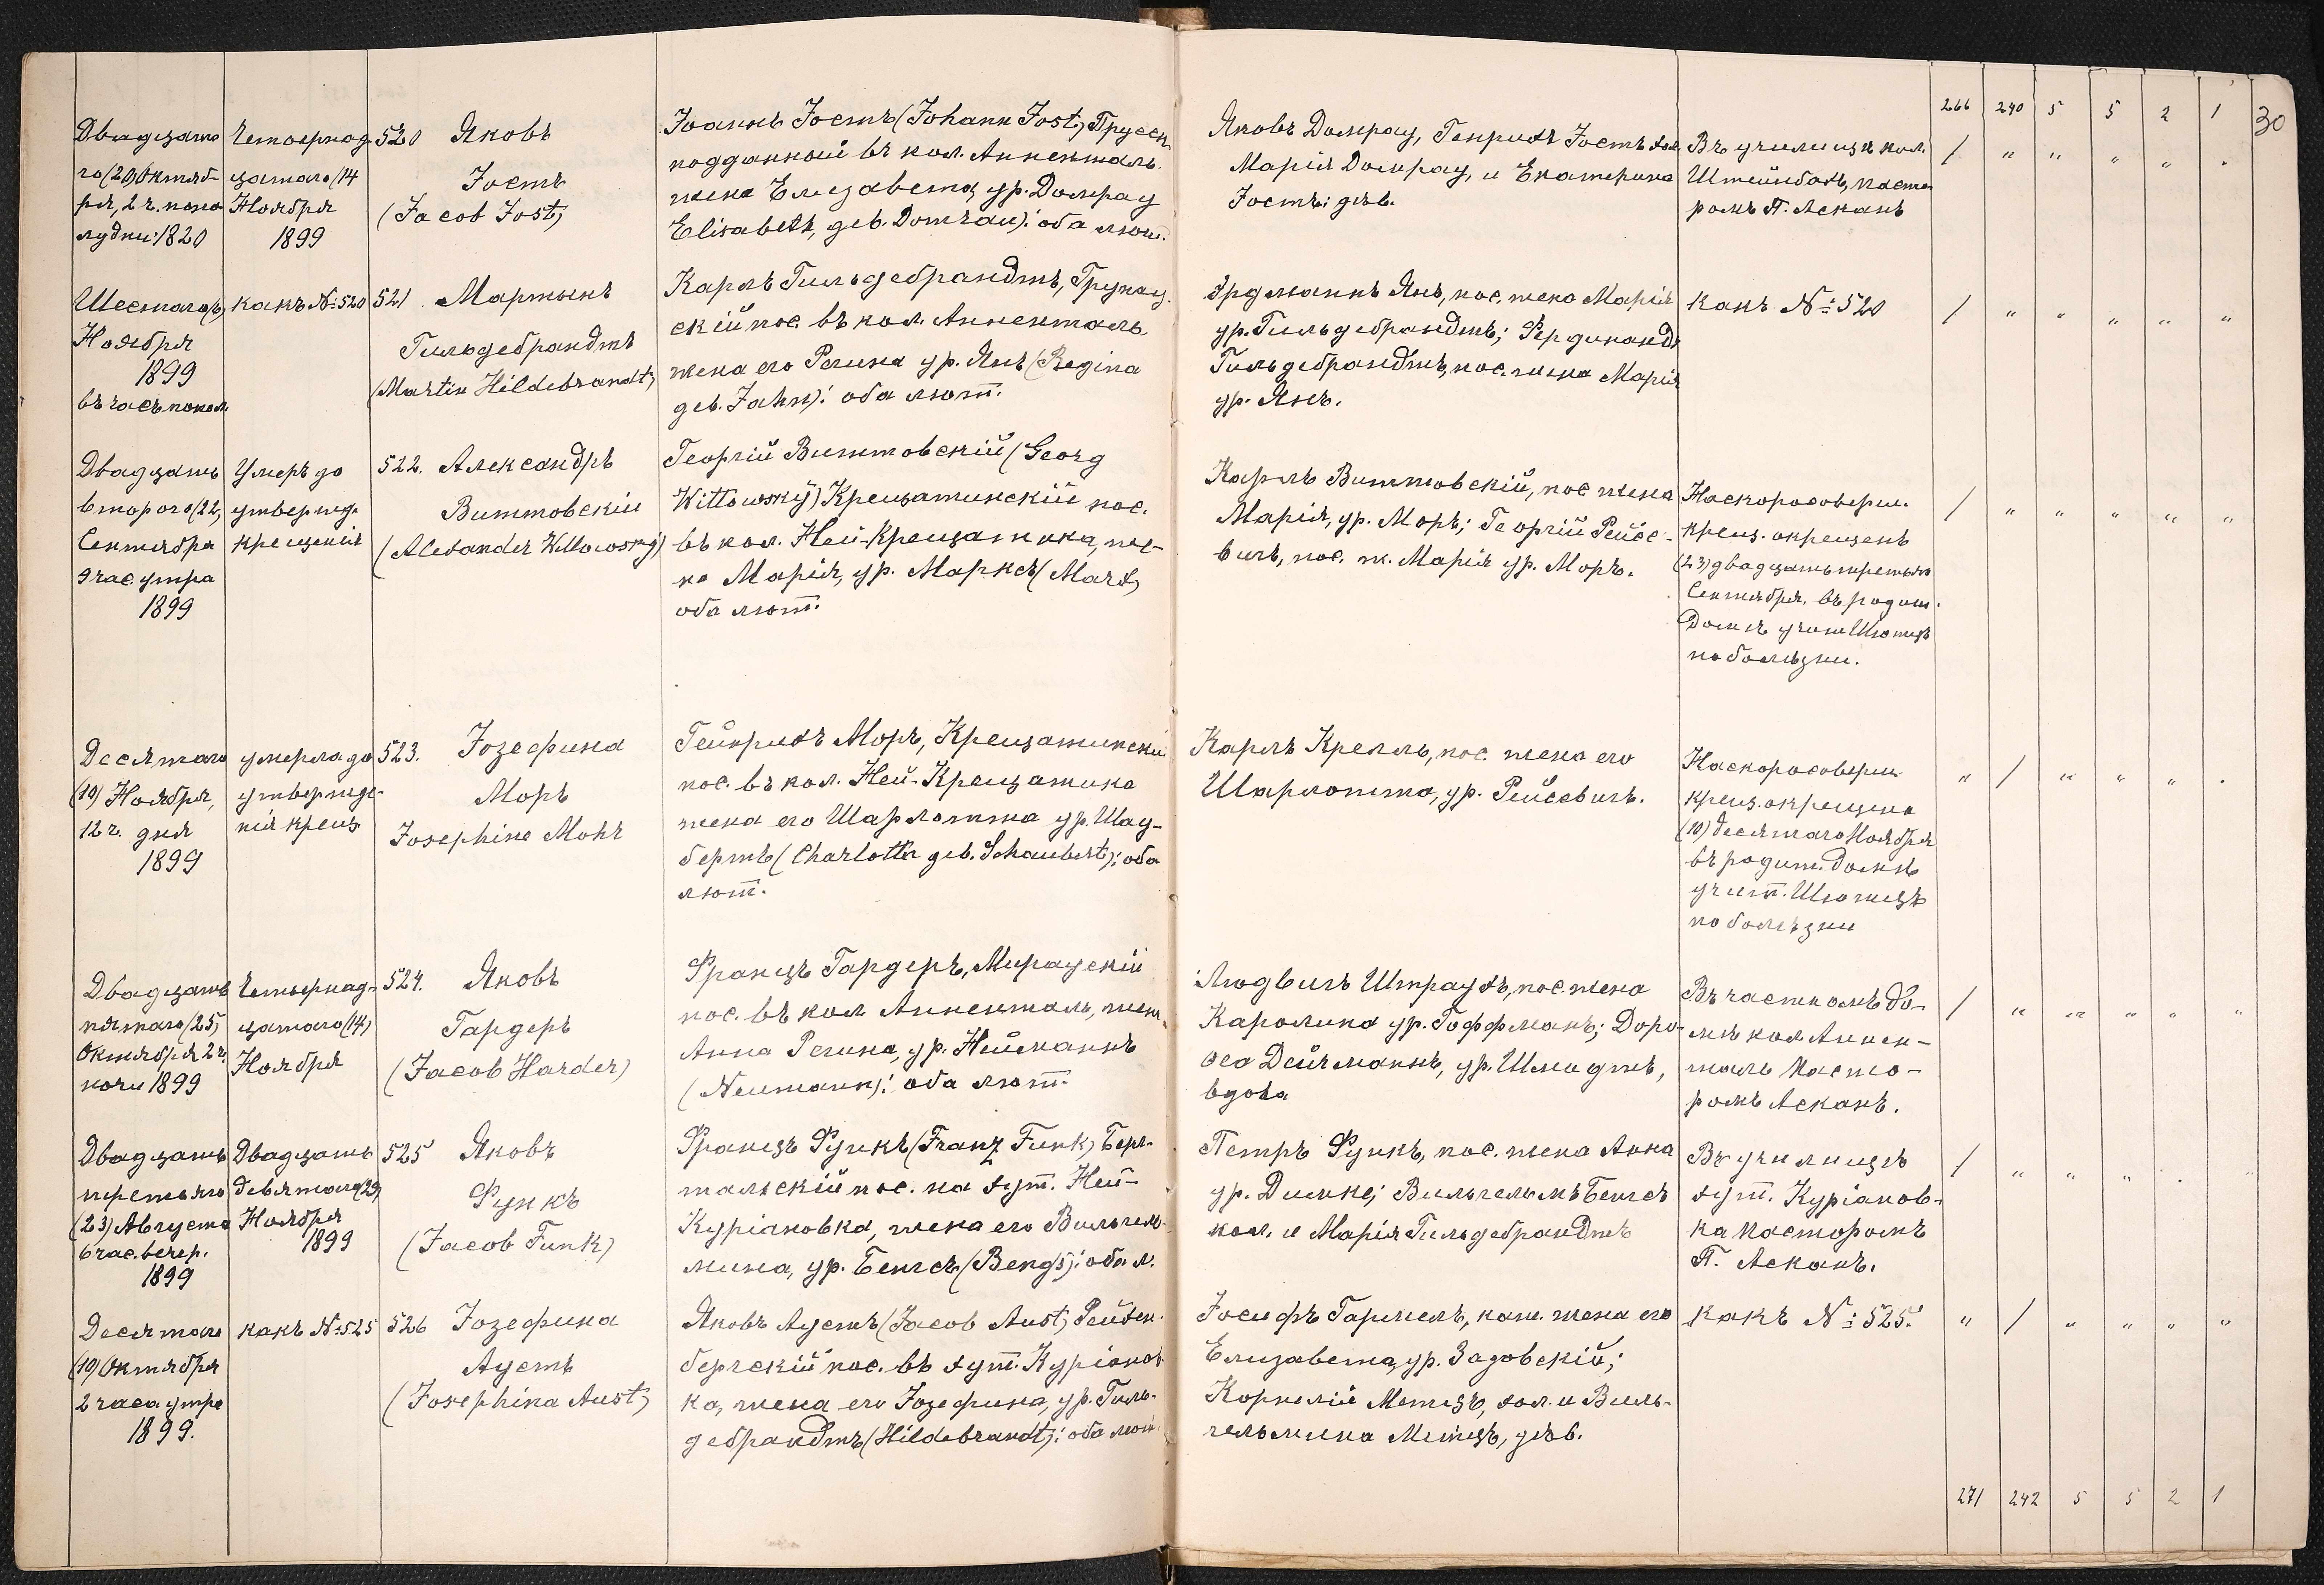 266 240 5 5 2 1 30
Двадцата
го (20) Октяб-
ря, 2 ч. попо
лудни: 1820
Четвернад-
цатаго (14
Ноября
1899
520 Яковъ
Іостъ
(Jacob Jost)
Іоаннъ Іостъ (Johann Jost) Прусск.
подданный въ кол. Анненталь.
жена Елизавета, ур. Домрау
Elisabeth, geb. Domrau): оба лют.
Яковъ Домрау, Генрихъ Іостъ хол.
Марія Домрау, и Екатерина
Іостъ: дѣв.
Въ училищѣ кол.
Штейнбахъ, пасто
ромъ П. Асканъ
/ " " " " "
Шестого (6)
Ноября
1899
въ часъ попол.
какъ №: 520
521 Мартынъ
Гильдебрандтъ
(Martin Hildebrandt)
Карлъ Гильдебрандтъ, Грунау-
скій пос. въ кол. Анненталь.
жена его Регина ур. Янъ (Regina
geb. Jahn): оба лют.
Эрдманнъ Янъ, пос. жена Марія
ур. Гильдебрандтъ; Фердинандъ
Гильдебрандтъ, пос. жена Марія
ур. Янъ.
какъ №: 520
/ " " " " "
Двадцать
второго (22)
Сентября
9 час. утра
1899
Умеръ до
утвержд.
крещенія
522. Александръ
Виттовскій
(Alexander Wittowsky)
Георгій Виттовскій (Georg
Wittowsky) Крещатинскій пос.
въ кол. Ней-Крещатика, же-
на Марія, ур. Марксъ (Marx)
оба лют.
Карлъ Виттовскій, пос. жена
Марія, ур. Моръ; Георгій Рейсе-
вичъ, пос. ж. Марія ур. Моръ.
Наскоросоверш.
крещ. окрещенъ
(23) двадцать третьяго
Сентября. въ родит.
домѣ учит. Шютцъ
по болѣзни.
/ " " " " "
Десятаго
(10) Ноября,
12 ч. дня
1899
умерла до
утвержде-
нія крещ.
523. Іозефина
Моръ
Josephine Mohr
Гейнрихъ Моръ, Крещатинскій
пос. въ кол. Ней-Крещатика
жена его Шарлотта ур. Шау-
бертъ (Charlotta geb. Schaubert): оба
лют.
Карлъ Крелль, пос. жена его
Шарлотта, ур. Рейсевичъ.
Наскоросоверш.
крещ. окрещена
(10) десятаго Ноября
въ родит. домѣ
учит. Шютцъ
по болѣзни
" / " " " "
Двадцать
пятаго (25)
Октября 2 ч.
ночи 1899
Четвернад-
цатаго (14)
Ноября
524. Яковъ
Гардеръ
(Jacob Harder)
Францъ Гардеръ, Мирауский
пос. въ кол. Анненталь, жена
Анна Регина, ур. Нейманнъ
(Neumann): оба лют.
Людвигъ Штраухъ, пос. жена
Каролина ур. Гоффманъ; Доро-
оеа Дейчманнъ, ур. Шмидтъ,
вдова
Въ частномъ до-
мѣ кол Аннен-
таль Пасто-
ромъ Асканъ.
/ " " " " "
Двадцать
третьяго
(23) Августа
6 час. вечер.
1899
Двадцать
девятаго (29)
Ноября
1899
525 Яковъ
Функъ
(Jacob Funk)
Францъ Функъ (Franz Funk) Берг-
тальскій пос. на хут. Ней-
Куріановка, жена его Вильгель-
мина, ур. Бенгсъ (Bengs): оба л.
Петръ Функъ, пос. жена Анна
ур. Димке; Вильгельмъ Бенгсъ
хол. и Марія Гильдебрандтъ
Въ училищѣ
хут. Куріанов-
ка Пасторомъ
П. Асканъ.
/ " " " " "
Десятаго
(10) Октября
2 часа утра
1899.
какъ №: 525
526 Іозефина
Аустъ
(Josephina Aust)
Яковъ Аустъ (Jacob Aust) Рейхен-
бергскій пос. въ хут. Куріанов-
ка, жена его Іозефина, ур. Гиль-
дебрандтъ (Hildebrandt): оба лют.
Іосифъ Гармель, жена его
Елизавета, ур. Задовскій;
Корнелій Метцъ, хол. и Виль-
гельмина Метцъ, дѣв.
какъ №: 525.
" / " " " "
271 242 5 5 2 1